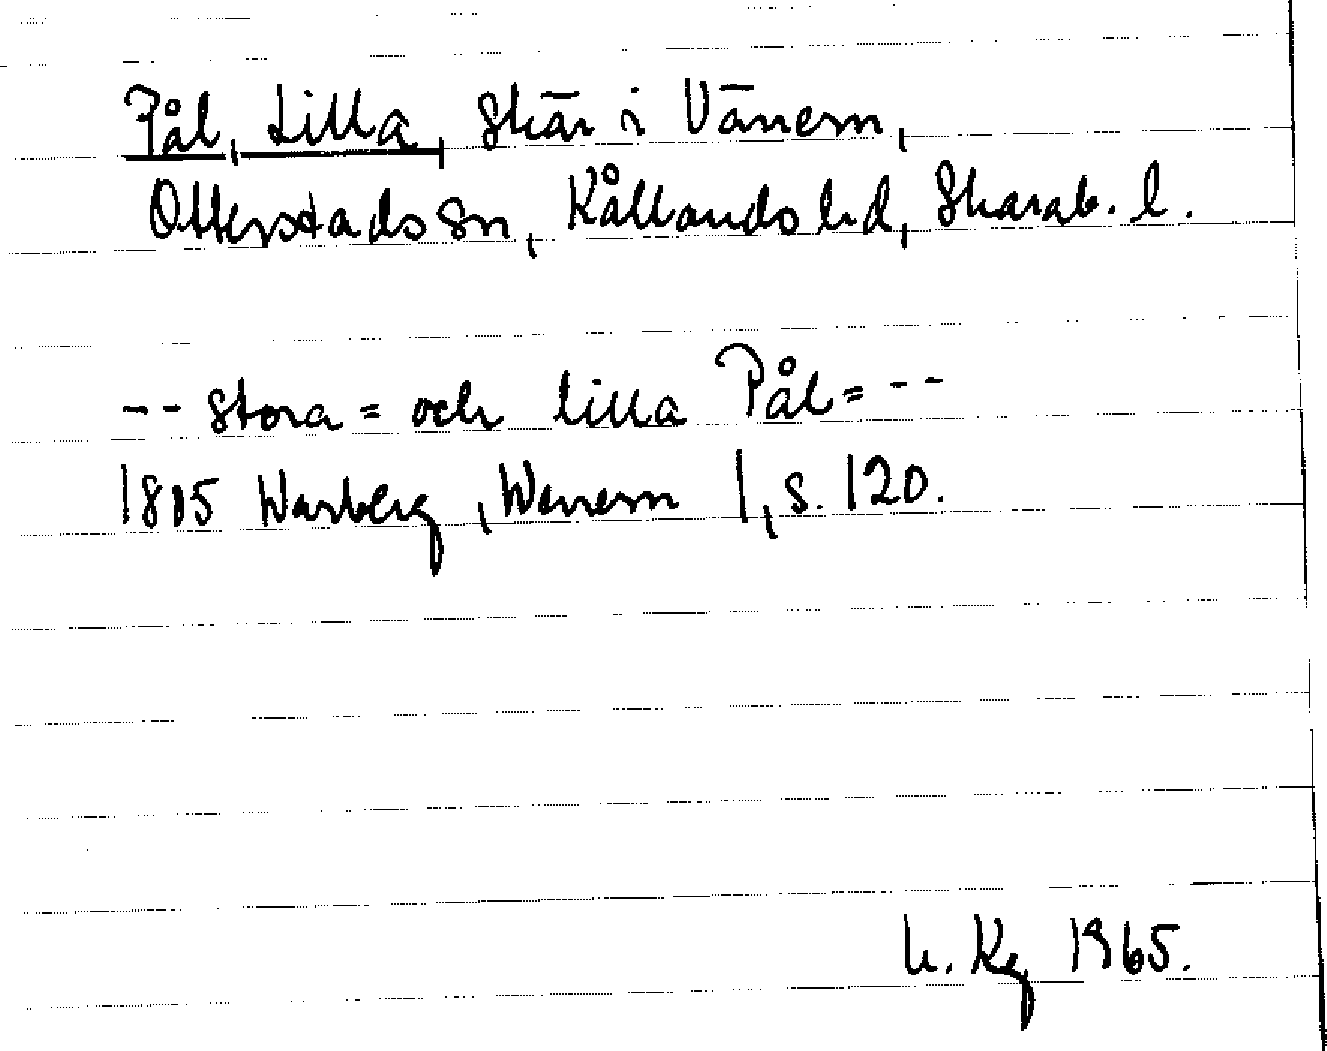 Pål, Lilla, skär i Vänern,
Otterstads sn, Kållands hd, Skarab. l.
-- stora = och lilla Pål= --
1805 Warberg, Wenern I, s. 120.
h. Kg 1965.